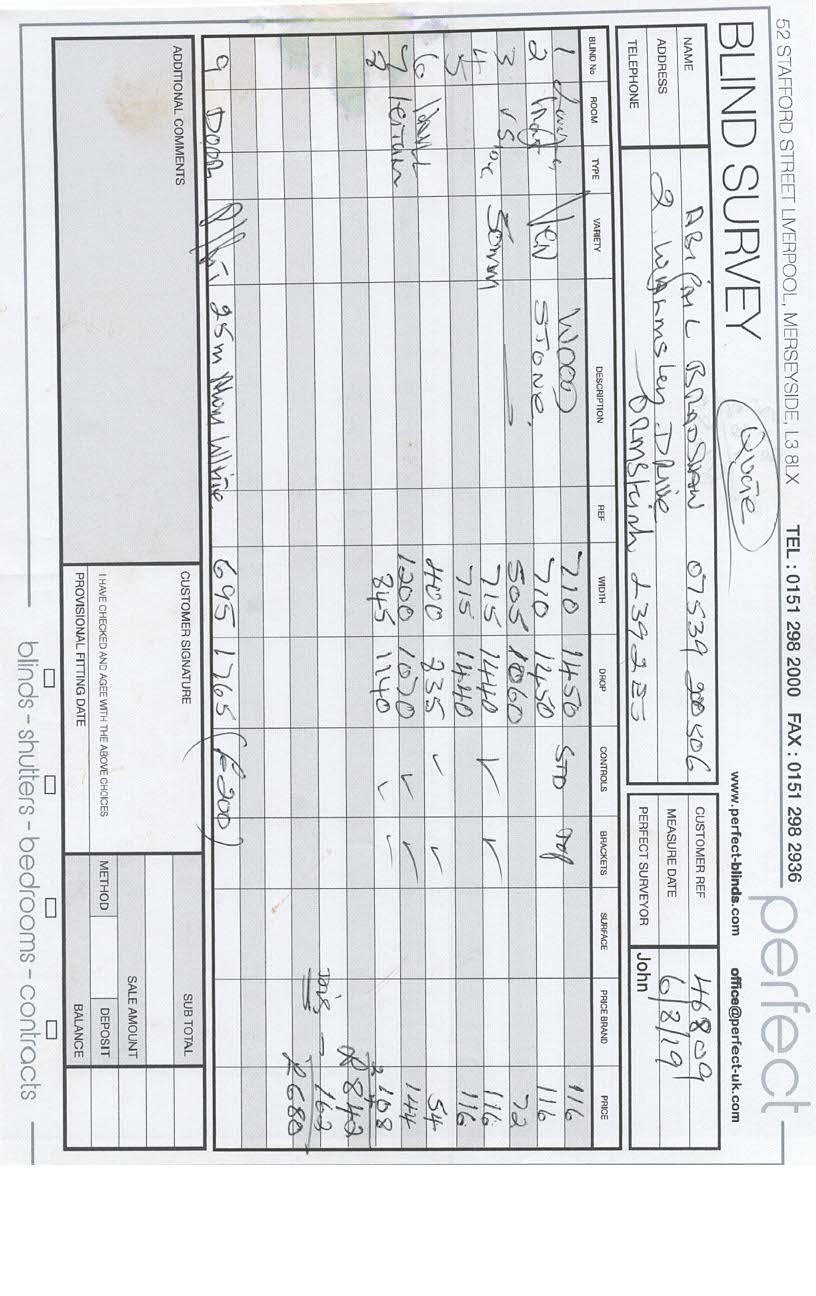 52 STAFFORD STREET LIVERPOOL, MERSEYSIDE, L3 8LX TEL : 0151 298 2000 FAX : 0151 298 2936
perfect
BLIND SURVEY
Quote
www.perfect-blinds.com office@perfect-uk.com
NAME ABIGAIL BRADSHAW 07539 200506
ADDRESS 2 DRIVE
ORMSKIRK L39
TELEPHONE
CUSTOMER REF 46809
MEASURE DATE 6/8/19
PERFECT SURVEYOR John
BLIND No ROOM TYPE VARIETY DESCRIPTION REF WIDTH DROP CONTROLS BRACKETS SURFACE PRICE BRAND PRICE
1 WOOD 710 1450 STD TOP 116
2 VEN STONE 710 1450 116
3 505 1060 72
4 50mm 715 1440 ✓ ✓ 116
5 715 1440 116
6 400 835 ✓ ✓ 54
7 1200 1070 ✓ ✓ 144
8 845 1140 ✓ 108
£842
Dis - 162
£680
9 DOOR 25m White 695 1765 (£200)
ADDITIONAL COMMENTS
CUSTOMER SIGNATURE
I HAVE CHECKED AND AGREE WITH THE ABOVE CHOICES
PROVISIONAL FITTING DATE
SUB TOTAL
SALE AMOUNT
METHOD DEPOSIT
BALANCE
blinds - shutters - bedrooms - contracts